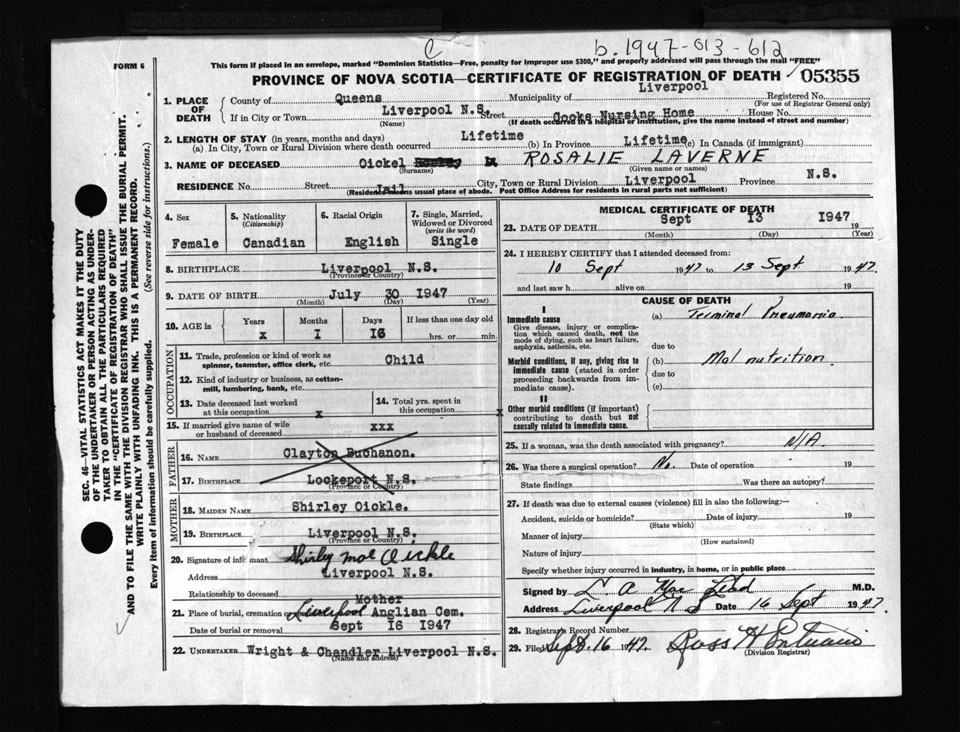 C b. 1947-013-612
FORM 6
This form if placed in an envelope, marked "Dominion Statistics—Free, penalty for improper use $300," and properly addressed will pass through the mail "FREE"
PROVINCE OF NOVA SCOTIA—CERTIFICATE OF REGISTRATION OF DEATH 05355
1. PLACE OF DEATH
County of Queens Municipality of Liverpool Registered No.
(For use of Registrar General only)
If in City or Town Liverpool N.S. Street Cooks Nursing Home House No.
(Name) (If death occurred in a hospital or institution, give the name instead of street and number)
2. LENGTH OF STAY (in years, months and days)
(a) In City, Town or Rural Division where death occurred Lifetime (b) In Province Lifetime (c) In Canada (if immigrant)
3. NAME OF DECEASED Oickel ROSALIE LAVERNE
(Surname) (Given name or names)
RESIDENCE No. Street Jail City, Town or Rural Division Liverpool Province N.S.
(Residence means usual place of abode. Post Office Address for residents in rural parts not sufficient)
4. Sex
Female
5. Nationality
(Citizenship)
Canadian
6. Racial Origin
English
7. Single, Married, Widowed or Divorced
(write the word)
Single
8. BIRTHPLACE Liverpool N.S.
(Province or Country)
9. DATE OF BIRTH July 30 1947
(Month) (Day) (Year)
10. AGE in
Years Months Days If less than one day old
x I I6 hrs. or min.
OCCUPATION
11. Trade, profession or kind of work as spinner, teamster, office clerk, etc. Child
12. Kind of industry or business, as cotton-mill, lumbering, bank, etc.
13. Date deceased last worked at this occupation x
14. Total yrs. spent in this occupation x
15. If married give name of wife or husband of deceased xxx
FATHER
16. NAME Clayton Buchanon.
17. BIRTHPLACE Lockeport N.S.
(Province or Country)
MOTHER
18. MAIDEN NAME Shirley Oickle.
19. BIRTHPLACE Liverpool N.S.
(Province or Country)
20. Signature of informant Shirley Mae Oickle
Address Liverpool N.S.
Relationship to deceased Mother
21. Place of burial, cremation or Liverpool Anglian Cem.
Date of burial or removal Sept I6 1947
22. UNDERTAKER Wright & Chandler Liverpool N.S.
(Name and address)
MEDICAL CERTIFICATE OF DEATH
23. DATE OF DEATH Sept I3 1947 19
(Month) (Day) (Year)
24. I HEREBY CERTIFY that I attended deceased from:
10 Sept 1947 to 13 Sept 1947
and last saw h alive on 19
CAUSE OF DEATH
I
Immediate cause
Give disease, injury or complication which caused death, not the mode of dying, such as heart failure, asphyxia, asthenia, etc.
(a) Terminal Pneumonia
due to
Morbid conditions, if any, giving rise to immediate cause (stated in order proceeding backwards from immediate cause).
(b) Mal nutrition
due to
(c)
II
Other morbid conditions (if important) contributing to death but not causally related to immediate cause.
25. If a woman, was the death associated with pregnancy? N/A
26. Was there a surgical operation? No. Date of operation 19
State findings Was there an autopsy?
27. If death was due to external causes (violence) fill in also the following:—
Accident, suicide or homicide? Date of injury 19
(State which)
Manner of injury
(How sustained)
Nature of injury
Specify whether injury occurred in industry, in home, or in public place
Signed by L. A. Mac Leod M.D.
Address Liverpool N S Date 16 Sept 1947.
28. Registrars Record Number
29. Filed Sept. 16 1947. Ross H
(Division Registrar)
SEC. 46—VITAL STATISTICS ACT MAKES IT THE DUTY
OF THE UNDERTAKER OR PERSON ACTING AS UNDER-
TAKER TO OBTAIN ALL THE PARTICULARS REQUIRED
IN THE "CERTIFICATE OF REGISTRATION OF DEATH"
AND TO FILE THE SAME WITH THE DIVISION REGISTRAR WHO SHALL ISSUE THE BURIAL PERMIT.
WRITE PLAINLY WITH UNFADING INK. THIS IS A PERMANENT RECORD.
Every item of information should be carefully supplied. (See reverse side for instructions.)